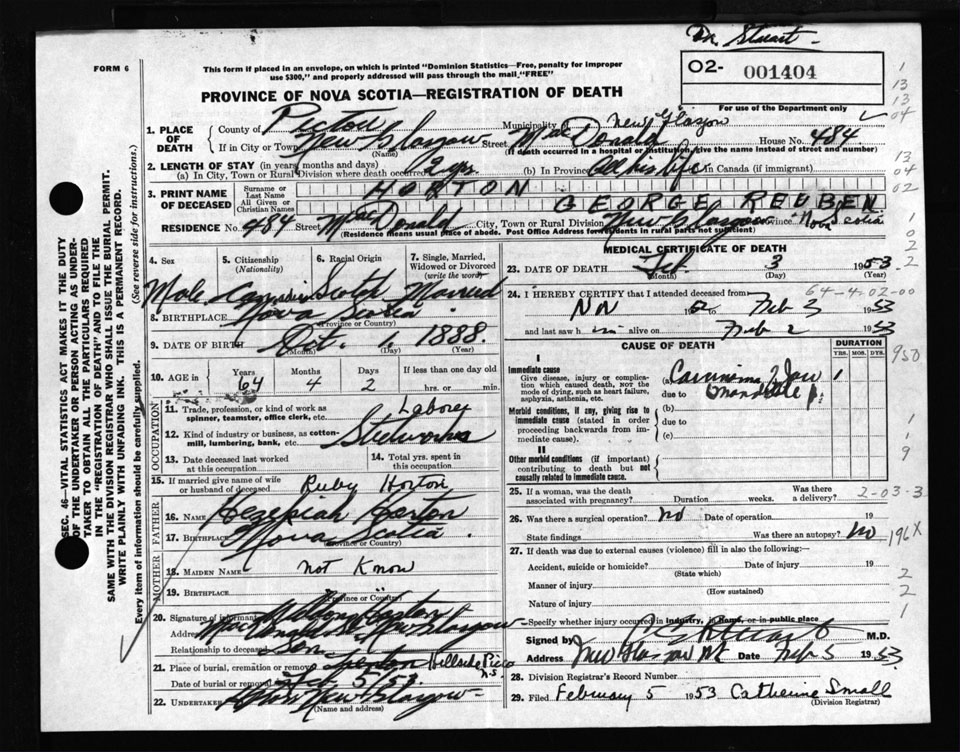 Dr Stuart
FORM 6
This form if placed in an envelope, on which is printed "Dominion Statistics—Free, penalty for improper
use $300," and properly addressed will pass through the mail "FREE"
O2- 001404
For use of the Department only
PROVINCE OF NOVA SCOTIA—REGISTRATION OF DEATH
1. PLACE OF DEATH County of Pictou Municipality New Glasgow
If in City or Town New Glasgow (Name) Street MacDonald House No. 484
(If death occurred in a hospital or institution, give the name instead of street and number)
2. LENGTH OF STAY (in years, months and days)
(a) In City, Town or Rural Division where death occurred 2 yrs. (b) In Province All his life (c) In Canada (if immigrant)
3. PRINT NAME OF DECEASED Surname or Last Name HORTON
All Given or Christian Names GEORGE REUBEN
RESIDENCE No. 484 Street MacDonald City, Town or Rural Division New Glasgow Province Nova Scotia
(Residence means usual place of abode. Post Office Address for residents in rural parts not sufficient)
4. Sex Male
5. Citizenship (Nationality) Canadian
6. Racial Origin Scotch
7. Single, Married, Widowed or Divorced (write the word) Married
8. BIRTHPLACE Nova Scotia (Province or Country)
9. DATE OF BIRTH Oct. 1, 1888. (Month) (Day) (Year)
10. AGE in Years 64 Months 4 Days 2 If less than one day hrs. or min.
OCCUPATION
11. Trade, profession, or kind of work as spinner, teamster, office clerk, etc. Laborer
12. Kind of industry or business, as cotton-mill, lumbering, bank, etc. Steelworks
13. Date deceased last worked at this occupation
14. Total yrs. spent in this occupation
15. If married give name of wife or husband of deceased Ruby Horton
FATHER
16. Name Hezekiah Horton
17. Birthplace Nova Scotia (Province or Country)
MOTHER
18. MAIDEN NAME not Know
19. BIRTHPLACE (Province or Country)
20. Signature of informant Horton
Address New Glasgow
Relationship to deceased Son
21. Place of burial, cremation or removal Hillside Pictou N.S
Date of burial or removal Feb 5/53.
22. UNDERTAKER New Glasgow
(Name and address)
MEDICAL CERTIFICATE OF DEATH
23. DATE OF DEATH Feb 3 1953 (Month) (Day) (Year)
64-4-02-00
24. I HEREBY CERTIFY that I attended deceased from
to Feb 3 1953
and last saw him alive on Feb 2 1953
CAUSE OF DEATH
DURATION
YRS. MOS. DYS.
I
Immediate cause
Give disease, injury or complication which caused death, not the mode of dying, such as heart failure, asphyxia, asthenia, etc.
(a) Carcinoma Jaw 1
due to Mandible
Morbid conditions, if any, giving rise to immediate cause (stated in order proceeding backwards from immediate cause).
(b)
due to
(c)
II
Other morbid conditions (if important) contributing to death but not causally related to immediate cause.
25. If a woman, was the death associated with pregnancy? Duration weeks. Was there a delivery?
2-03-3
26. Was there a surgical operation? No Date of operation 19
State findings Was there an autopsy? No
196X
27. If death was due to external causes (violence) fill in also the following:—
Accident, suicide or homicide? Date of injury 19
(State which)
Manner of injury
(How sustained)
Nature of injury
Specify whether injury occurred in industry, in home, or in public place
Signed by M.D.
Address New Glasgow NS Date Feb 5 1953.
28. Division Registrar's Record Number
29. Filed February 5 1953 Catherine Small
(Division Registrar)
SEC. 46—VITAL STATISTICS ACT MAKES IT THE DUTY
OF THE UNDERTAKER OR PERSON ACTING AS UNDER-
TAKER TO OBTAIN ALL THE PARTICULARS REQUIRED
IN THE "REGISTRATION OF DEATH" AND TO FILE THE
SAME WITH THE DIVISION REGISTRAR WHO SHALL ISSUE THE BURIAL PERMIT.
WRITE PLAINLY WITH UNFADING INK. THIS IS A PERMANENT RECORD.
Every item of information should be carefully supplied. (See reverse side for instructions.)